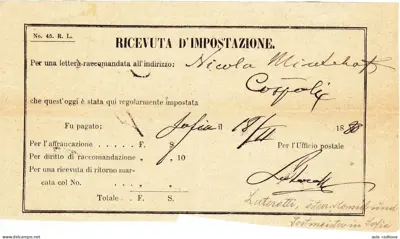 No. 45. R. L.
RICEVUTA D'IMPOSTAZIONE.
Per una lettera raccomandata all'indirizzo: Nicola
che quest'oggi è stata qui regolarmente impostata
Fu pagato: Sofia il 18/ 1880
Per l'affrancazione F. S. Per l'Ufficio postale
Per diritto di raccomandazione „ 10
Per una ricevuta di ritorno mar-
cata col No. „
Totale: F. S.
in Sofia